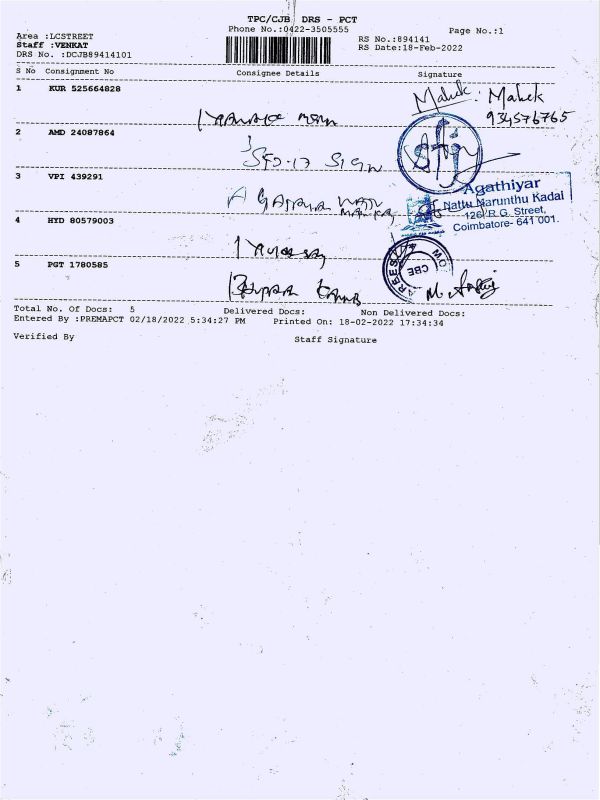 TPC/CJB DRS - PCT
Phone No.:0422-3505555
Page No.:1
Area :LCSTREET
Staff :VENKAT
DRS No. :DCJB89414101
RS No.:894141
RS Date:18-Feb-2022
S No Consignment No Consignee Details Signature
1 KUR 525664828
Mahek. Mahek
934576765
2 AMD 24087864
SIGN
3 VPI 439291
Agathiyar
Nattu Marunthu Kadai
126/R.G. Street,
Coimbatore- 641 001.
4 HYD 80579003
CBE
5 PGT 1780585
Total No. Of Docs: 5 Delivered Docs: Non Delivered Docs:
Entered By :PREMAPCT 02/18/2022 5:34:27 PM Printed On: 18-02-2022 17:34:34
Verified By Staff Signature